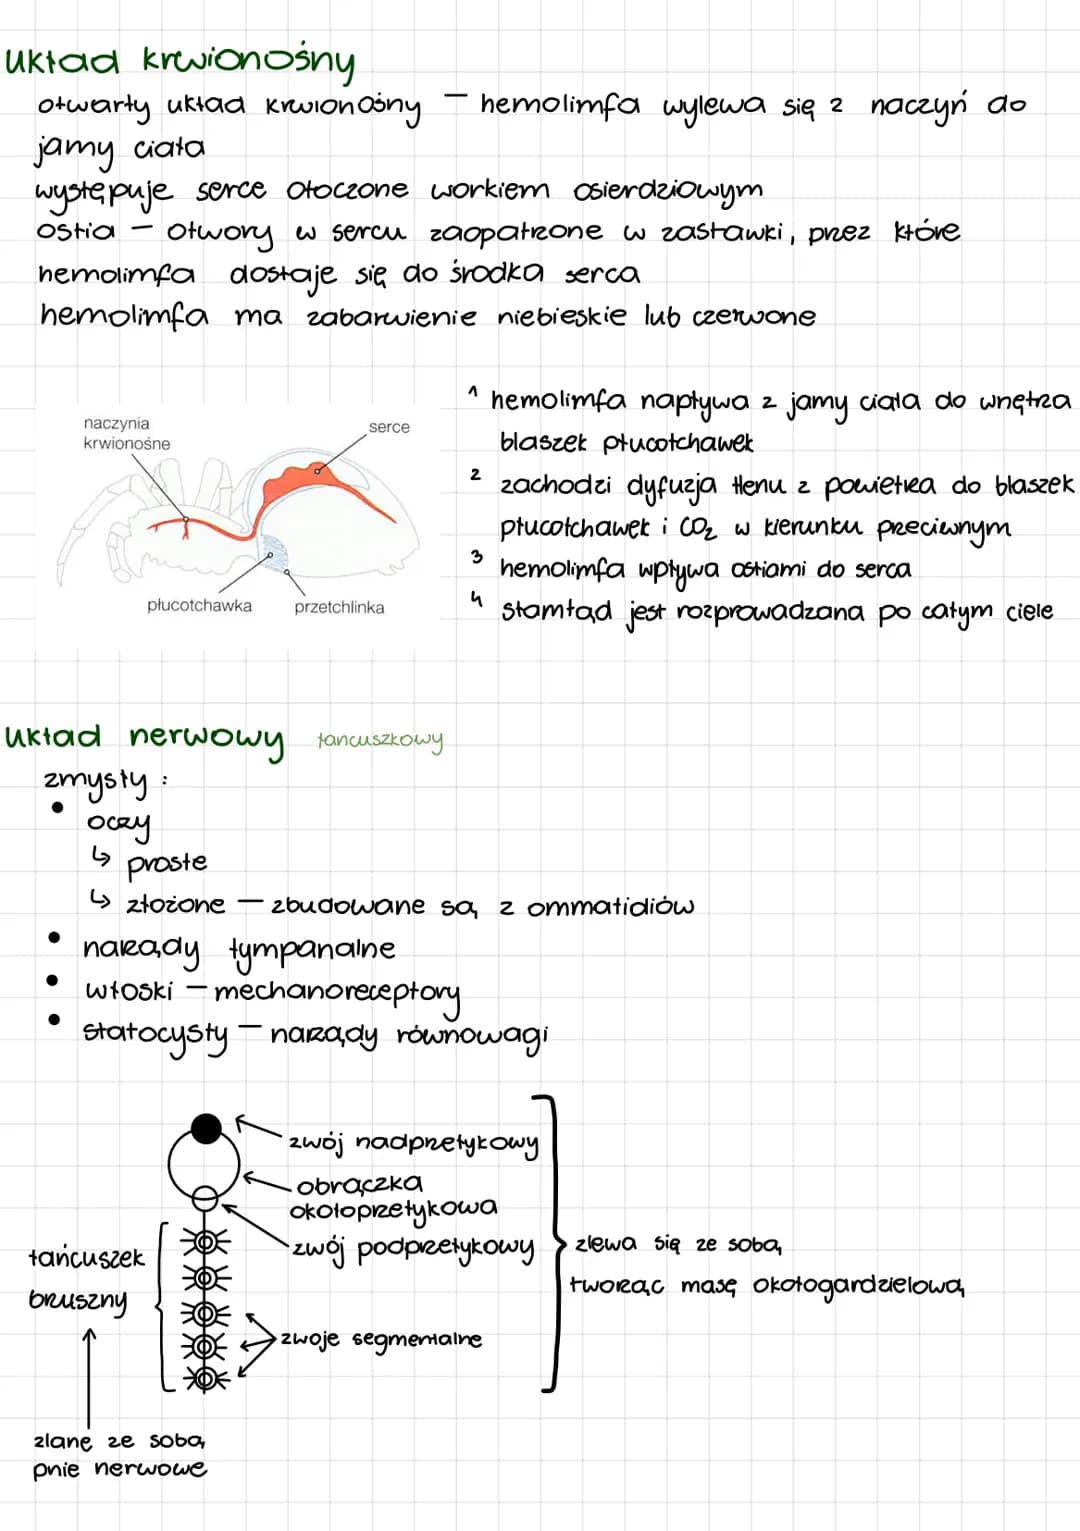 układ krwionośny
otwarty układ krwionośny – hemolimfa wylewa się z naczyń do
jamy ciała
występuje serce otoczone workiem osierdziowym
ostia – otwory w sercu zaopatrzone w zastawki, przez które
hemolimfa dostaje się do środka serca
hemolimfa ma zabarwienie niebieskie lub czerwone
naczynia
krwionośne
serce
płucotchawka
przetchlinka
1 hemolimfa napływa z jamy ciała do wnętrza
blaszek płucotchawek
2 zachodzi dyfuzja tlenu z powietrza do blaszek
płucotchawek i CO₂ w kierunku przeciwnym
3 hemolimfa wpływa ostiami do serca
4 stamtąd jest rozprowadzana po całym ciele
układ nerwowy łancuszkowy
zmysły :
• oczy
↳ proste
↳ złożone – zbudowane są z ommatidiów
• narządy tympanalne
• włoski – mechanoreceptory
• statocysty – narządy równowagi
zwój nadprzełykowy
obrączka
okołoprzełykowa
zwój podprzełykowy
łańcuszek
bruszny
zwoje segmentalne
zlewa się ze sobą
tworząc masę okołogardzielową
zlane ze sobą
pnie nerwowe